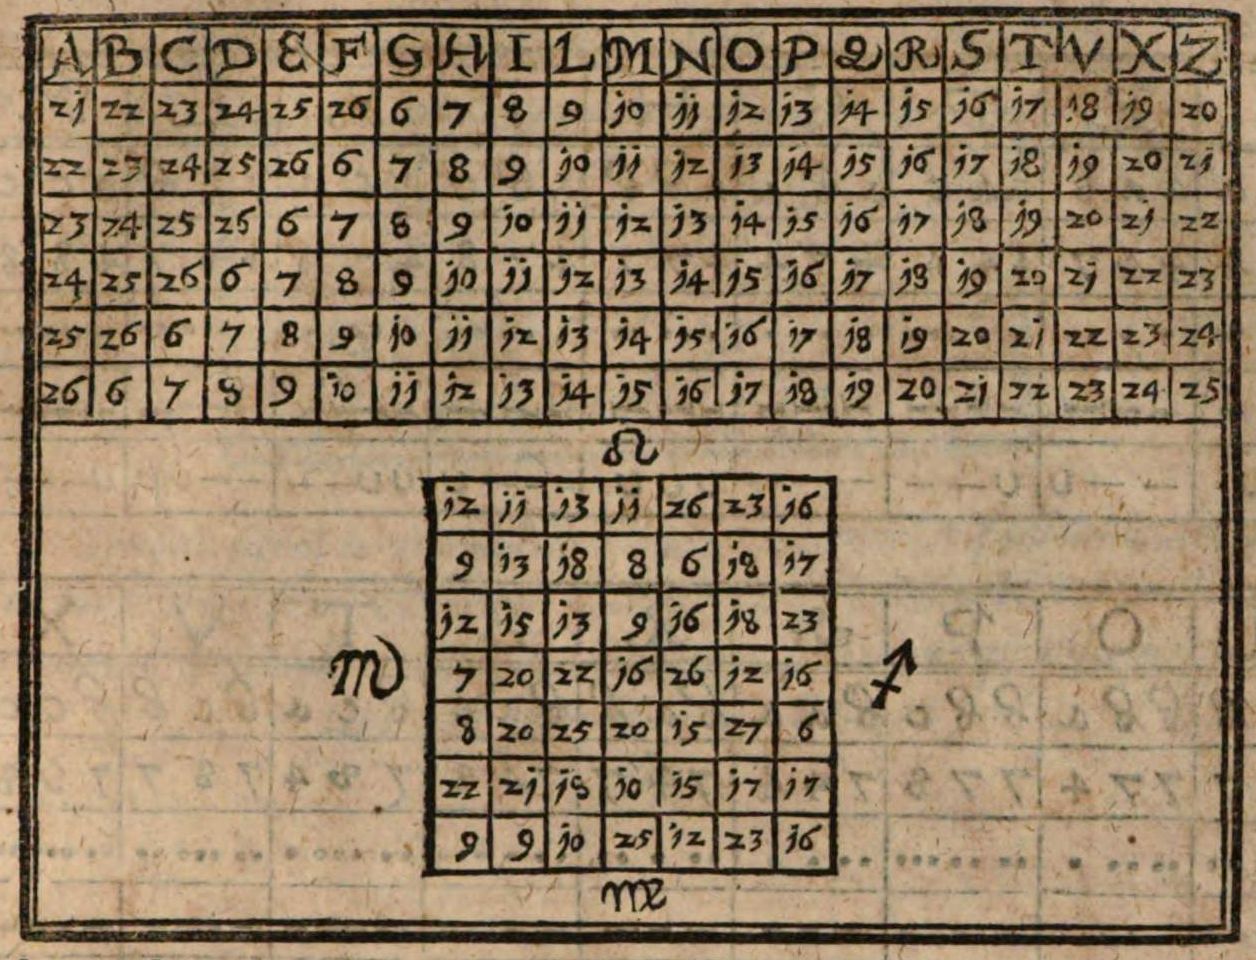 A B C D E F G H I L M N O P Q R S T V X Z
2j 22 23 24 25 26 6 7 8 9 j0 jj j2 j3 j4 j5 j6 j7 j8 j9 20
22 23 24 25 26 6 7 8 9 j0 jj j2 j3 j4 j5 j6 j7 j8 j9 20 2j
23 24 25 26 6 7 8 9 j0 jj j2 j3 j4 j5 j6 j7 j8 j9 20 2j 22
24 25 26 6 7 8 9 j0 jj j2 j3 j4 j5 j6 j7 j8 j9 20 2j 22 23
25 26 6 7 8 9 j0 jj j2 j3 j4 j5 j6 j7 j8 j9 20 2j 22 23 24
26 6 7 8 9 j0 jj j2 j3 j4 j5 j6 j7 j8 j9 20 2j 22 23 24 25
♌
j2 jj j3 jj 26 23 j6
9 j3 j8 8 6 j8 j7
j2 j5 j3 9 j6 j8 23
♍ 7 20 22 j6 26 j2 j6 ♐
8 20 25 20 j5 27 6
22 2j j8 j0 j5 j7 j7
9 9 j0 25 j2 23 j6
♏